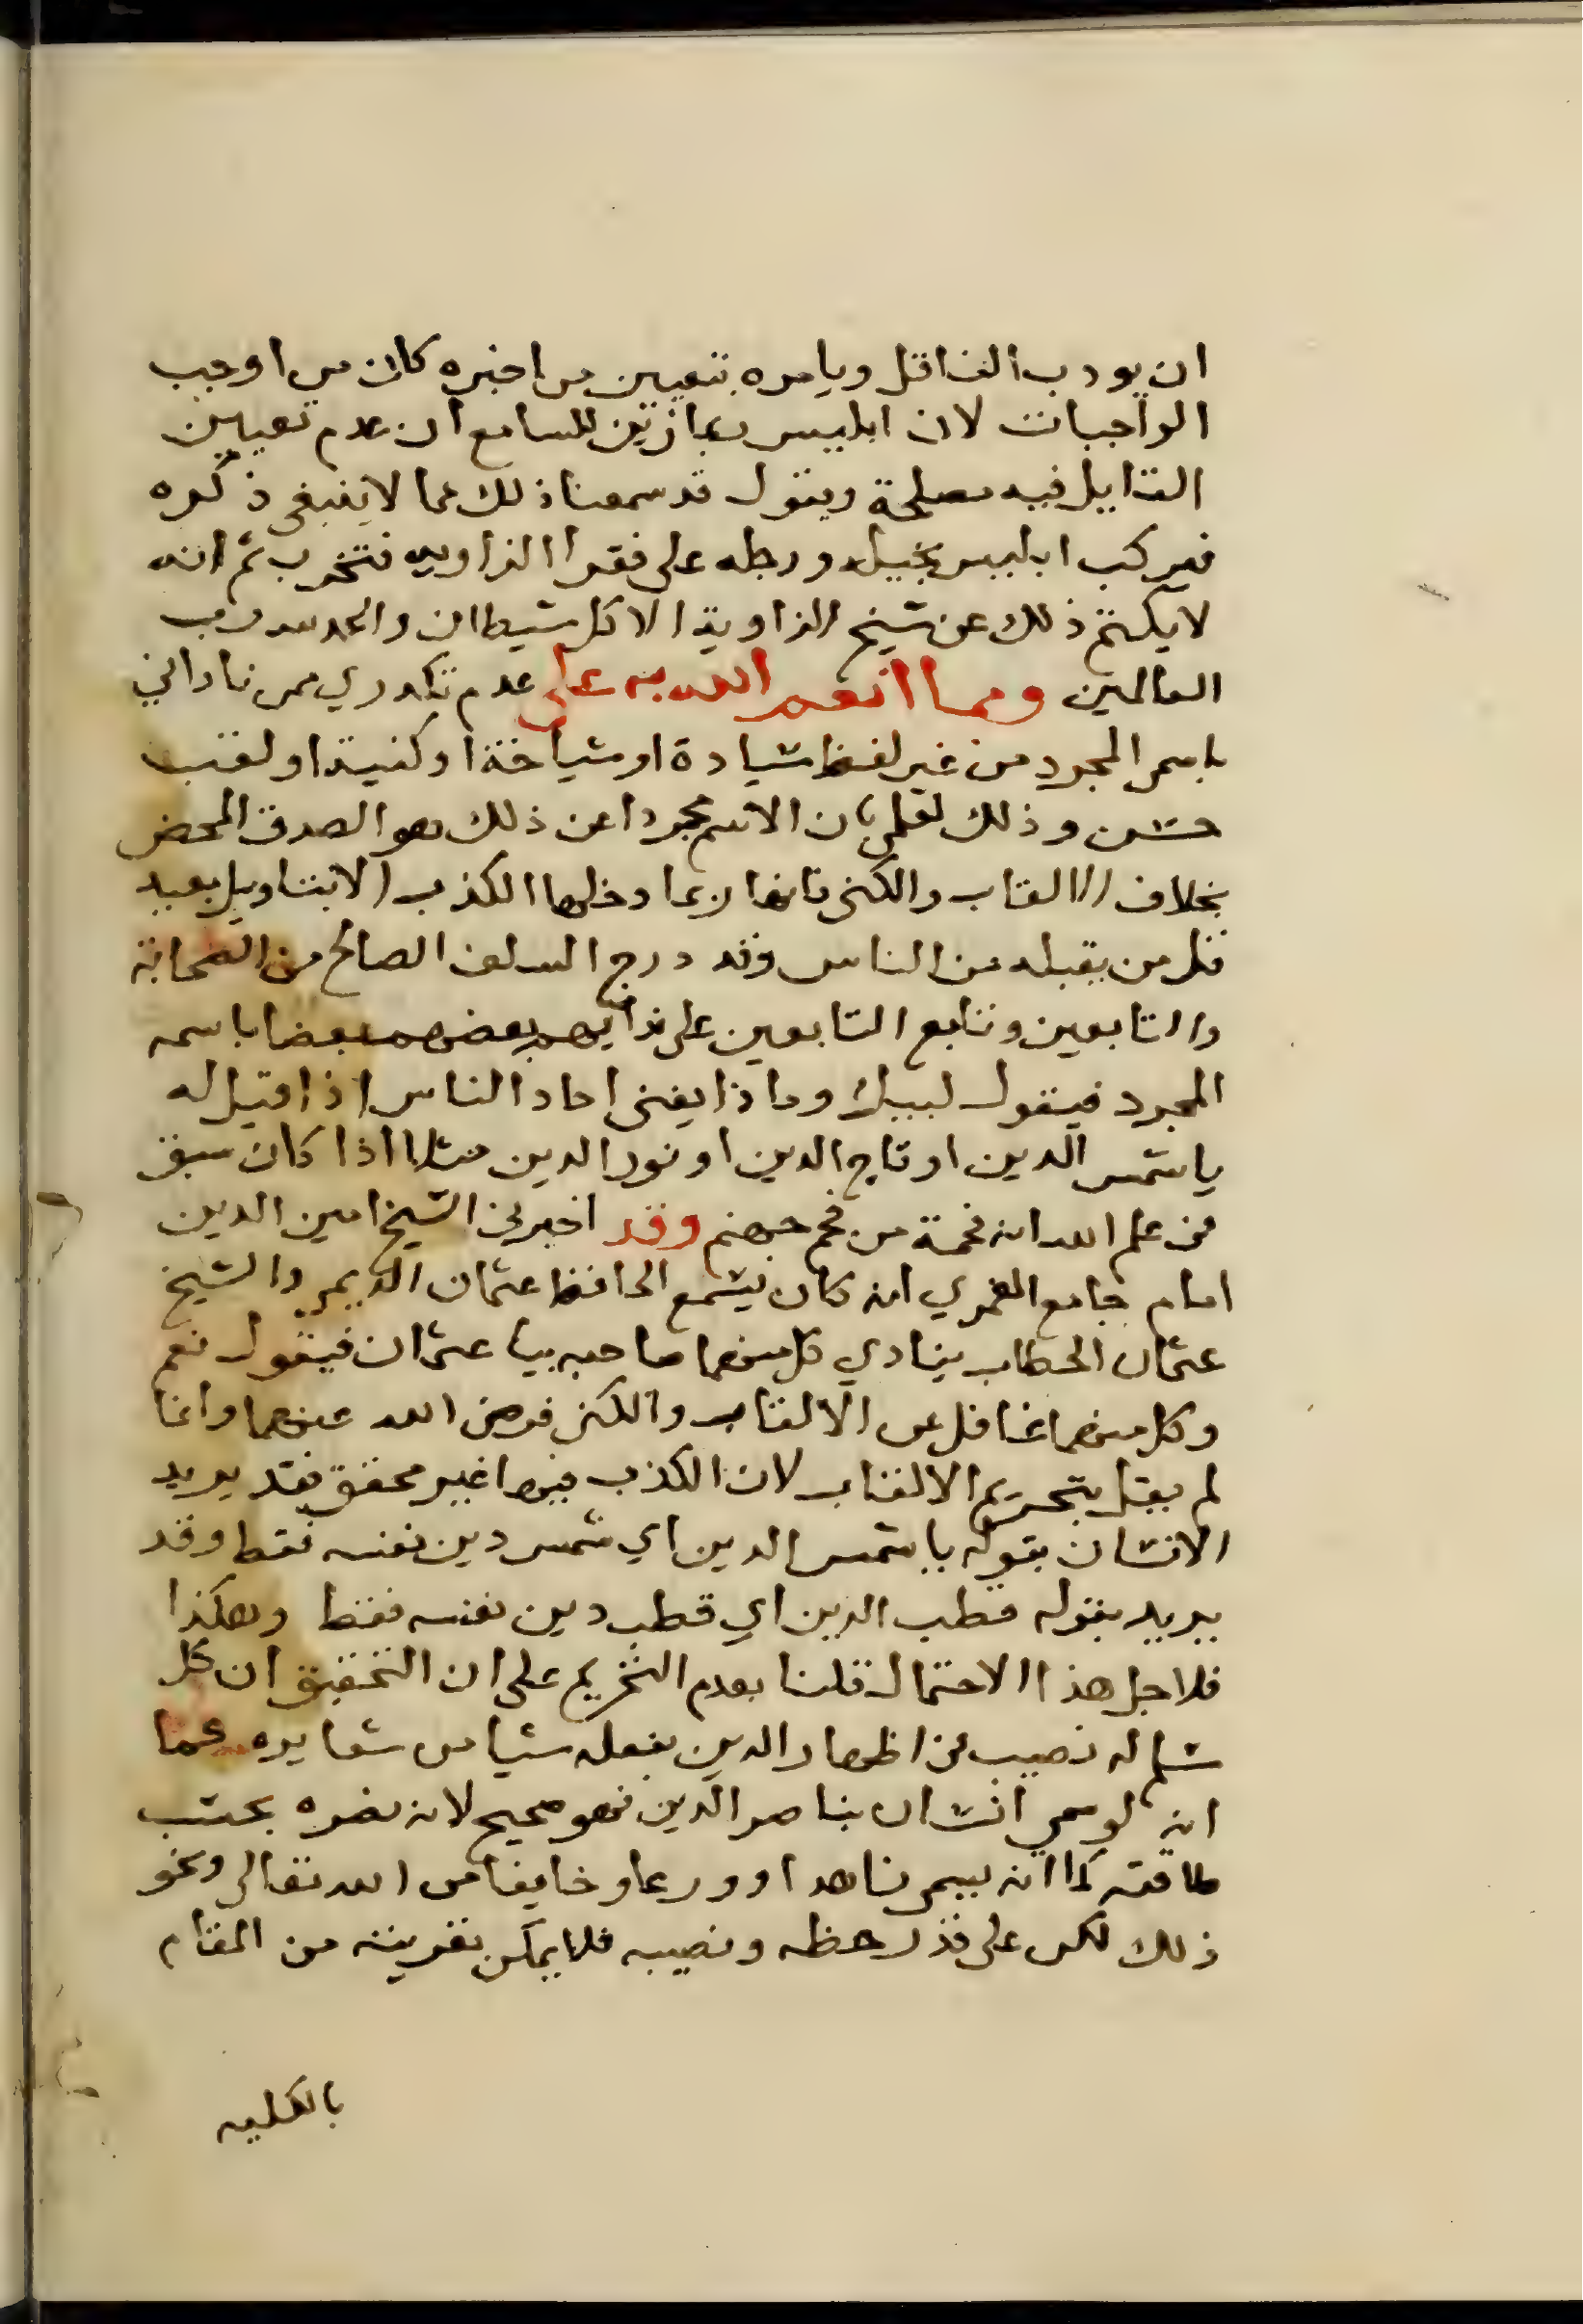 ان يودب الناقل ويامره بتعيين من اخبره كان من اوجب
الواجبات لان ابليس ربما زين للسامع ان عدم تعيين
القايل فيه مصلحة ويقول قد سمعنا ذلك مما لا ينبغي ذكره
فيركب ابليس بخيله ورجله على فقرا الزاويه فتخرب ثم انه
لا يكتم ذلك عن شيخ الزاوية الا كل شيطان والحمد لله رب
العالمين ومما انعم الله به على عدم تكدري ممن ناداني
باسمي المجرد من غير لفظ سيادة او مشياخة او كنية او لقب
حسن وذلك لعلمي بان الاسم مجردا عن ذلك هو الصدق المحض
بخلاف الالقاب والكنى فانها ربما دخلها الكذب الا بتاويل بعيد
قل من يقبله من الناس وقد درج السلف الصالح من الصحابة
والتابعين وتابع التابعين على ندايهم بعضهم بعضا باسمه
المجرد فيقول لبيك وماذا يغني احاد الناس اذا قيل له
يا شمس الدين او تاج الدين او نور الدين مثلا اذا كان سبق
في علم الله انه فحمة من فحم جهنم وقد اخبرني الشيخ امين الدين
امام جامع الغمري انه كان يسمع الحافظ عثمان الديمي والشيخ
عثمان الحطاب ينادي كل منهما صاحبه بيا عثمان فيقول نعم
وكل منهما غافل عن الالقاب والكنى فرضى الله عنهما وانما
لم يقل بتحريم الالقاب لان الكذب فيها غير محقق فقد يريد
الانسان بقوله يا شمس الدين اي شمس دين نفسه فقط وقد
يريد بقوله قطب الدين اي قطب دين نفسه فقط وهكذا
فلاجل هذا الاحتمال قلنا بعدم التحريم على ان التحقيق ان كل
مسلم له نصيب في اظهار الدين بفعله شيا من شعايره كما
انه لو سمي انسان بناصر الدين فهو صحيح لانه نصره بحسب
طاقته كما انه يسمى زاهدا وورعا وخايفا من الله تعالى ونحو
ذلك لكن على قدر حظه ونصيبه فلا يمكن تعريته من المقام
بالكليه